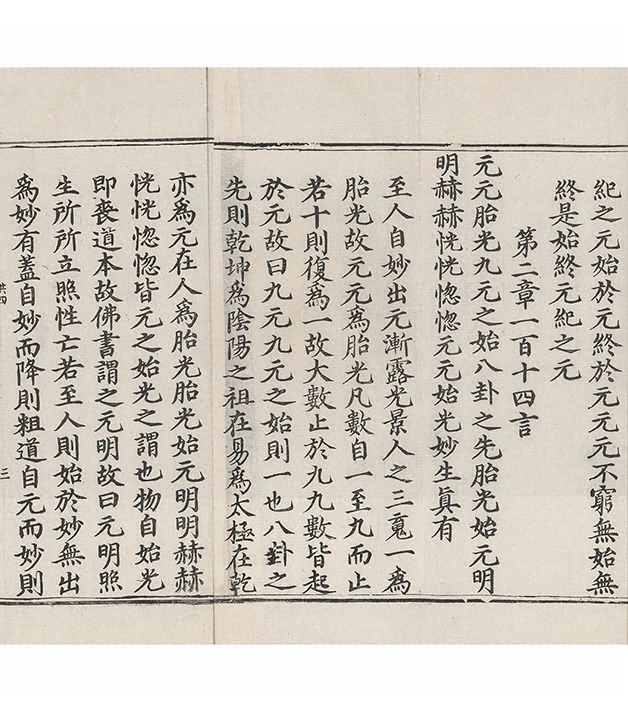 紀之元始於元終於元元元不窮無始無
終是始終元紀之元
第二章一百十四言
元元胎光九元之始八卦之先胎光始元明
明赫赫恍恍惚惚元元始光妙生真有
至人自妙出元漸露光景人之三䰟一爲
胎光故元元爲胎光凡數自一至九而止
若十則復爲一故大數止於九九數皆起
於元故曰九元九元之始則一也八卦之
先則乾坤爲陰陽之祖在易爲太極在乾
亦爲元在人爲胎光胎光始元明明赫赫
恍恍惚惚皆元之始光之謂也物自始光
即喪道本故佛書謂之元明故曰元明照
生所所立照性亡若至人則始於妙無出
爲妙有蓋自妙而降則粗道自元而妙則
共四
三